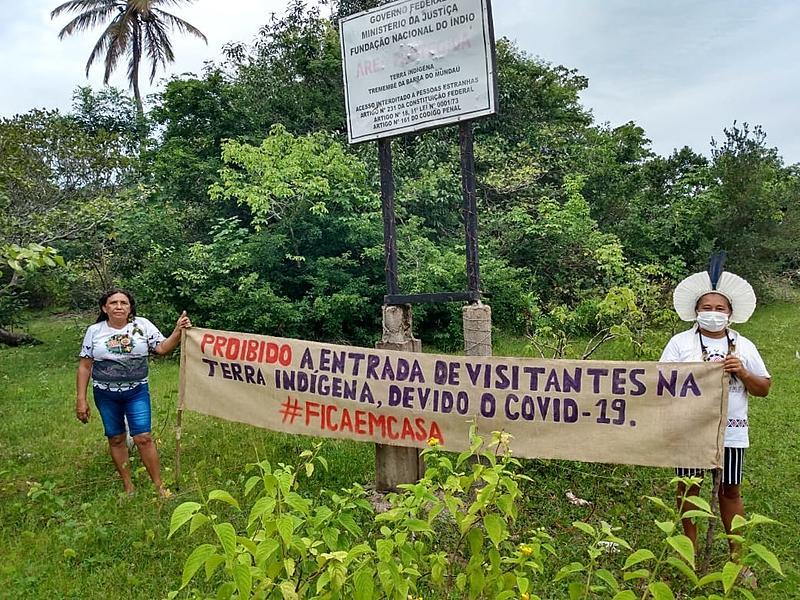 GOVERNO FEDERAL
MINISTÉRIO DA JUSTIÇA
FUNDAÇÃO NACIONAL DO ÍNDIO
TERRA INDÍGENA
TREMEMBÉ DA BARRA DO MUNDAÚ
ACESSO INTERDITADO À PESSOAS ESTRANHAS
ARTIGO Nº 231 DA CONSTITUIÇÃO FEDERAL
ARTIGO Nº 18, 1º LEI Nº 6001/73
ARTIGO Nº 161 DO CÓDIGO PENAL
PROIBIDO A ENTRADA DE VISITANTES NA
TERRA INDÍGENA, DEVIDO O COVID-19.
#FICAEMCASA